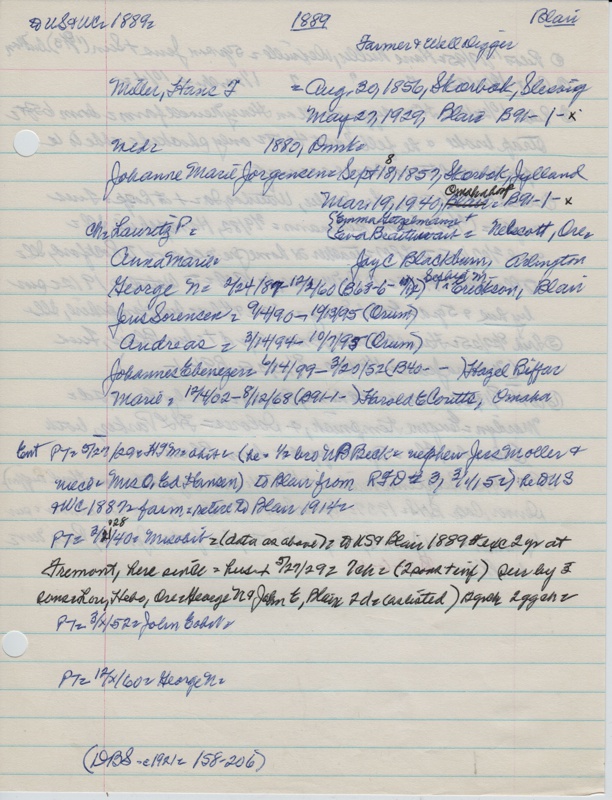 to US & WC = 1889 =
1889
Blair
Farmer & Well Digger
Miller, Hans F = Aug. 20, 1856, Skorbek, Slesvig
May 27, 1929, Blair B91-1-x
md = 1880, Dmk =
Johanne Marie Jorgensen = Sept 8, 1857, Skorbek, Jylland
Mar. 19, 1940, Omaha hosp = B91-1-x
Ch = Lauritz P = {Emma Stogelmann +
{Eva Brattwait = Nelscott, Ore =
Anna Marie = Jay C Blackburn, Arlington
George N = 2/24/87 - 12/2/60 (B68-6- Sophie M - Erickson, Blair
Jens Sorensen = 9/4/90 - 1/13/95 (Orum)
Andreas = 3/14/94 - 10/7/95 (Orum)
Johannes Ebenezer = 6/14/99 - 3/20/52 (B40- - ) Hazel Biffar
Marie = 12/4/02 - 8/12/68 (B91-1- ) Harold E Coutts, Omaha
Ent PT = 5/27/29 = HFM = obit = (he = 1/2 bro NB Beck = nephew Jess Moller &
niece = Mrs O. Ed. Hansen) to Blair from RFD # 3, he to US
& WC 1887 = farm = retire to Blair 1914 =
PT = 3/28/40 = Mrs obit = (data as above) = to US & Blair 1889 exc 2 yr at
Fremont, here since = hus + 5/27/29 = 7 ch = (2 sons + inf) sur by 3
sons = Ore = George N & John E, Blair 2 d = (as listed) 12 gch 2 ggch =
PT = 3/x/52 = John E obit =
PT = 12/x/60 = George N =
(DBS - c1921 = 158-206)